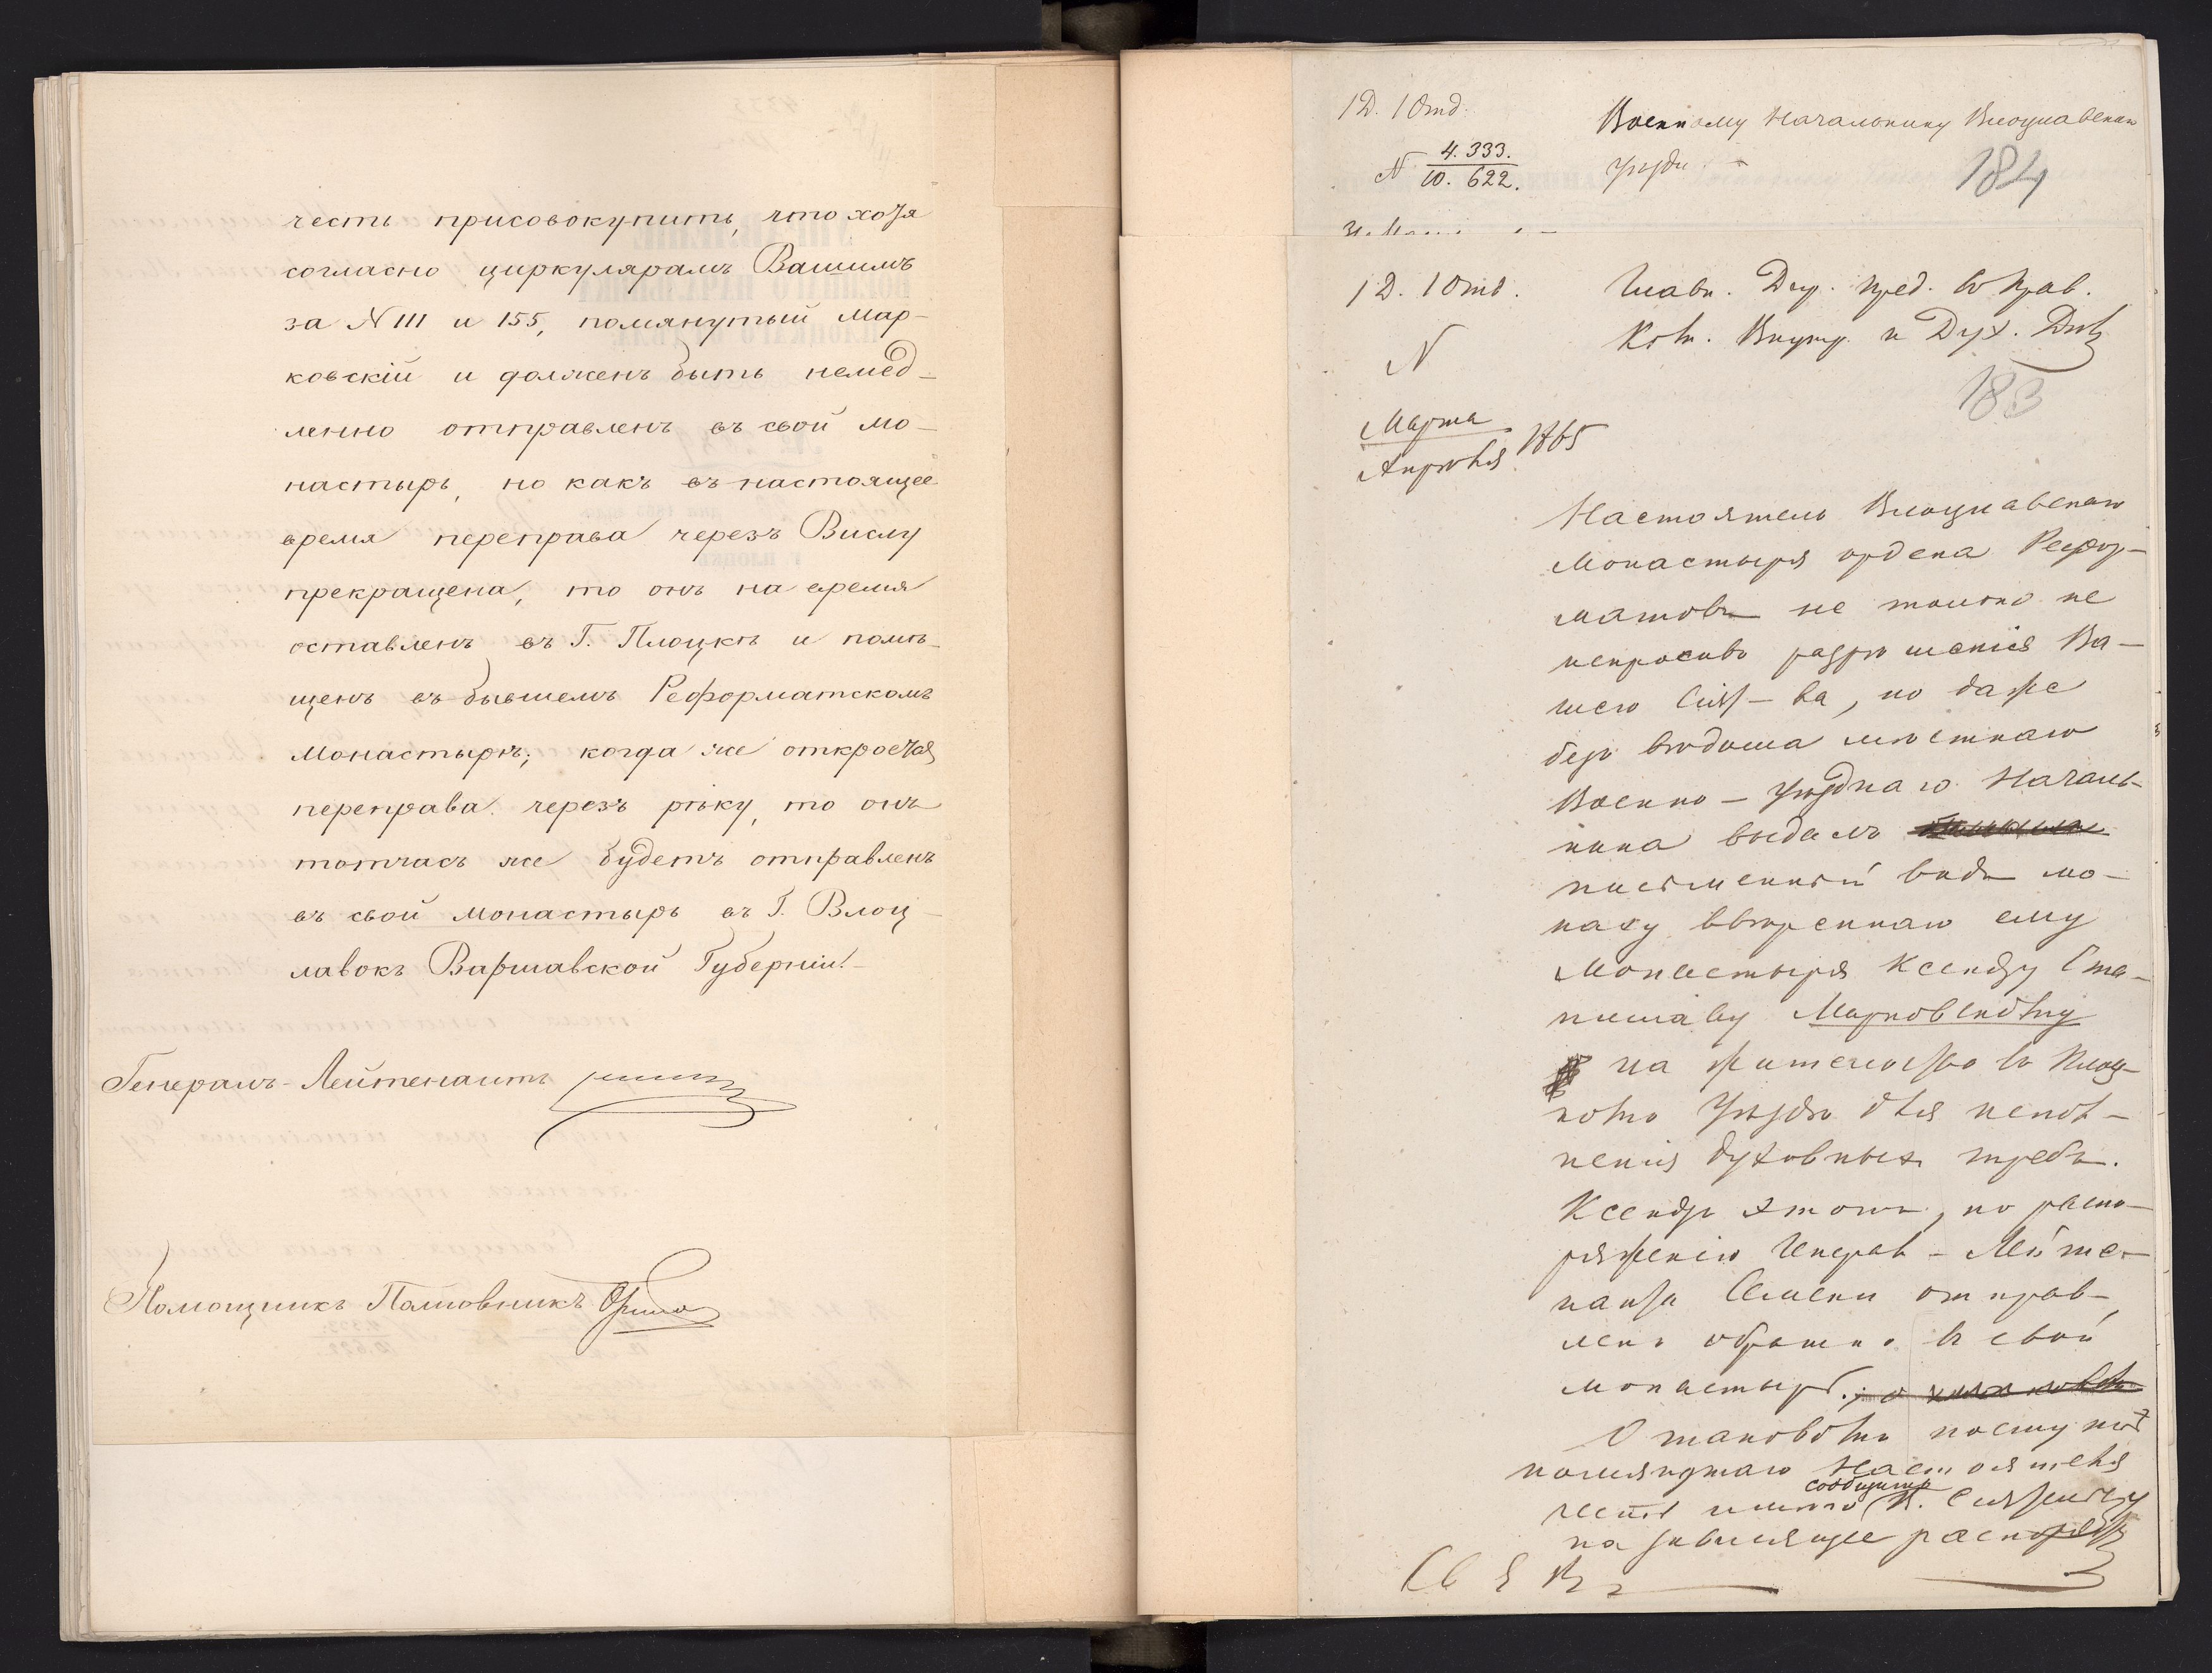 честь присовокупить, что хотя
согласно циркулярамъ Вашимъ
за № 111 и 155, помянутый Мар-
ковскій и долженъ быть немед-
ленно отправленъ въ свой мо-
настырь, но какъ въ настоящее
время переправа черезъ Вислу
прекращена, то онъ на время
оставленъ въ Г. Плоцкѣ и помѣ-
щенъ въ бывшемъ Реформатскомъ
Монастырѣ; когда же откроется
переправа черезъ рѣку, то онъ
тотчасъ же будетъ отправленъ
въ свой монастырь въ Г. Влоц-
лавокъ Варшавской Губерніи.
Генералъ-Лейтенантъ
Помощникъ Полковникъ
1 Д. 1 Отд.
N 4.333.
10.622.
Военному Начальнику Влоцлавскаго
уѣзда
184
1 Д. 1 Отд.
N
Марта
Апрѣля 1865
Главн. Дир. Пред. въ Прав.
Ком. Внутр. и Дух. Дѣлъ
183
Настоятель Влоцлавскаго
Монастыря ордена Рефор-
матовъ не только не
испросивъ разрѣшенія Ва-
шего Сият-ва, но даже
безъ вѣдома мѣстнаго
Военно-Уѣзднаго Началь-
ника выдалъ
письменный видъ мо-
наху ввѣреннаго ему
Монастыря Ксендзу Ста-
ниславу Марковскому
на жительство въ Плоц-
комъ Уѣздѣ для испол-
ненія духовныхъ требъ.
Ксендзъ этотъ, по распо-
ряженію Генерал-Лейте-
нанта Семеки отправ-
ленъ обратно въ свой
монастырь.
О таковомъ поступкѣ
помянутаго Настоятеля
сообщить
честь имѣю В. Сиятельству
на зависящее распоряж